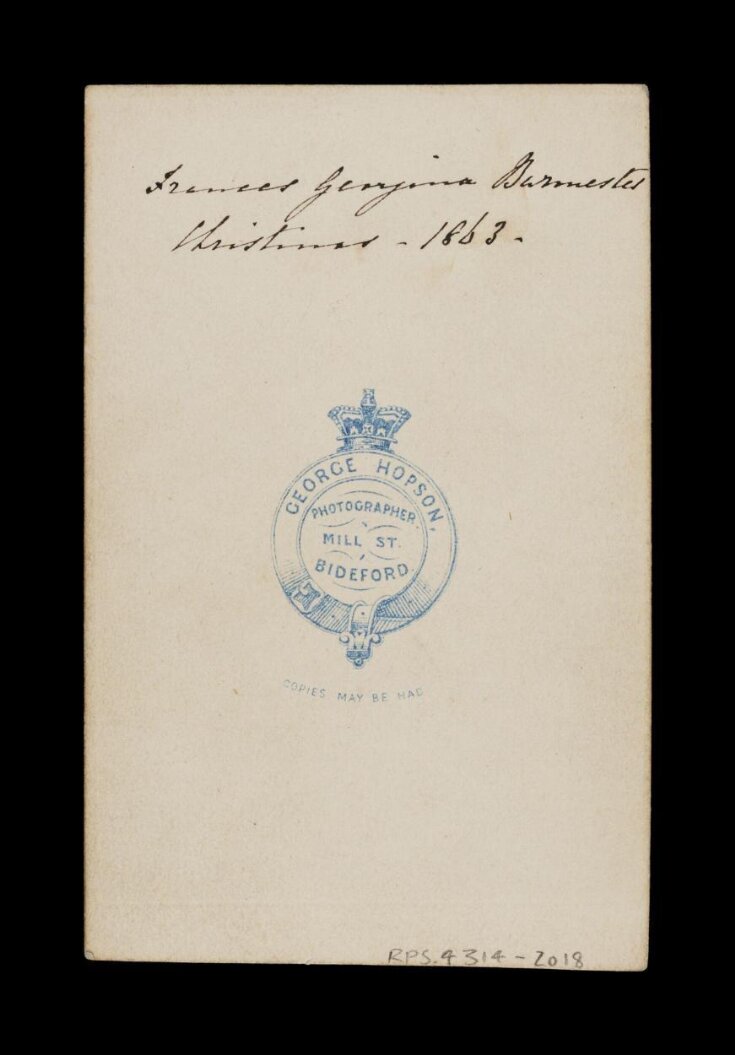 Frances Georgina Burmester
Christmas - 1863 -
GEORGE HOPSON,
PHOTOGRAPHER
MILL ST.
BIDEFORD
COPIES MAY BE HAD
RPS.4314-2018